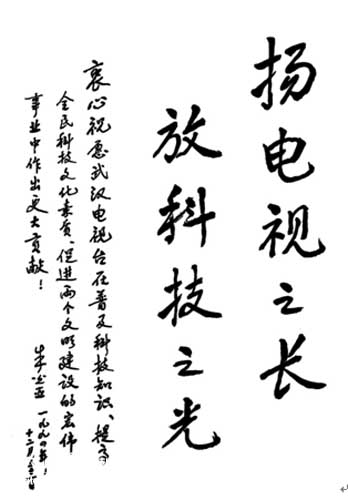 扬电视之长
放科技之光
衷心祝愿武汉电视台在普及科技知识、提高
全民科技文化素质、促进两个文明建设的宏伟
事业中作出更大贡献！
朱光亚 一九九四年
十二月